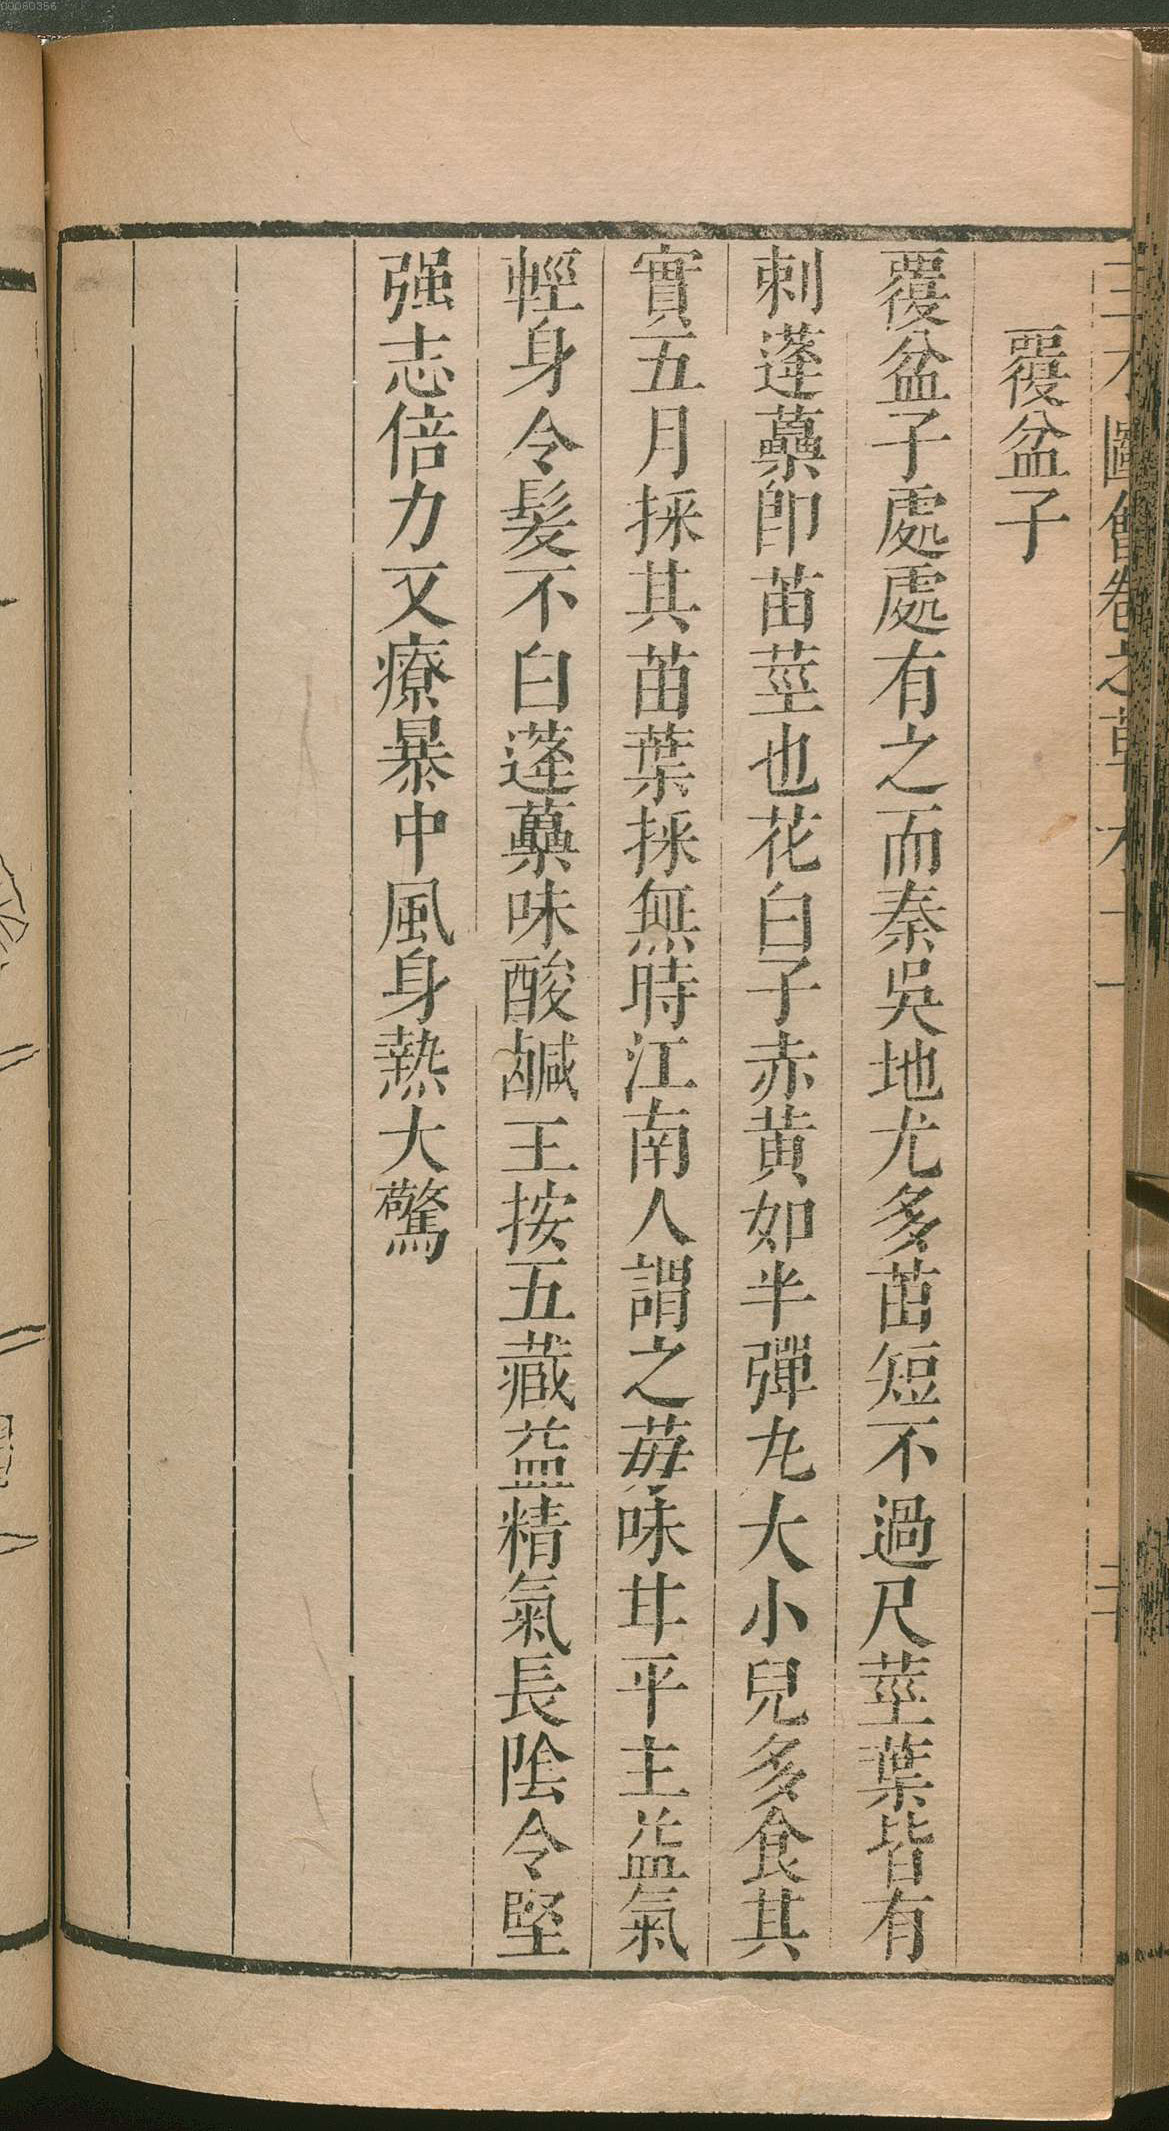 00060356
三才圖會卷之草木十一
二十
覆盆子
覆盆子處處有之而秦吳地尤多苗短不過尺莖葉皆有
刺蓬蘽即苗莖也花白子赤黃如半彈丸大小兒多食其
實五月採其苗葉採無時江南人謂之莓味甘平主益氣
輕身令髮不白蓬蘽味酸鹹王按五藏益精氣長陰令堅
强志倍力又療暴中風身熱大驚